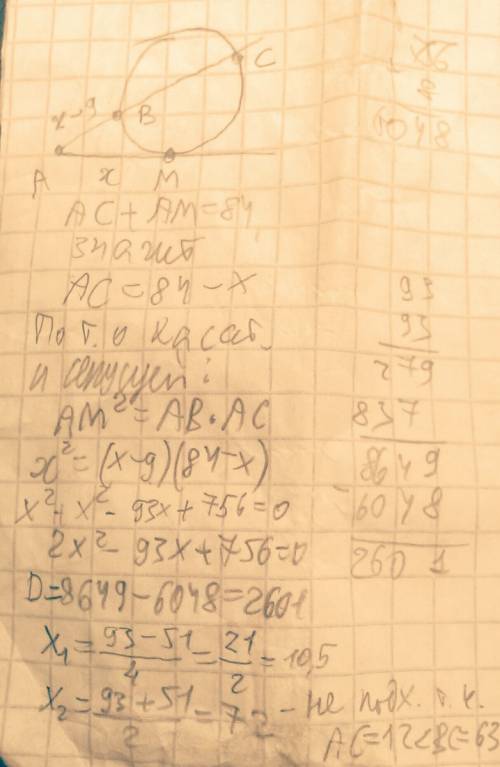 C
x-9
B
A x M
AC + AM = 84
значит
AC = 84 - x
По т. о касат.
и секущей:
AM² = AB · AC
x² = (x-9)(84-x)
x² + x² - 93x + 756 = 0
2x² - 93x + 756 = 0
D = 8649 - 6048 = 2601
x₁ = (93-51)/4 = 21/2 = 10,5
x₂ = (93+51)/2 = 72 - не подх. т.к.
AC = 12 < BC = 63
8
6048
93
93
279
837
8649
- 6048
2601